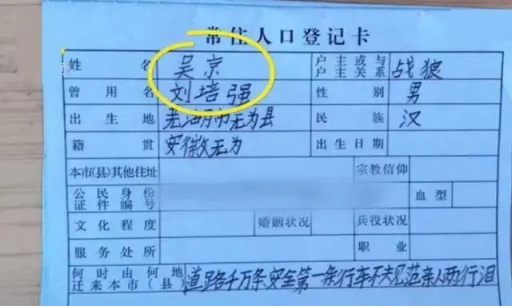 常住人口登记卡
姓名 吴京 户主或与户主关系 战狼
曾用名 刘培强 性别 男
出生地 芜湖市无为县 民族 汉
籍贯 安徽无为 出生日期
本市(县)其他住址 宗教信仰
公民身份证件编号 血型
文化程度 婚姻状况 兵役状况
服务处所 职业
何时由何地迁来本市(县) 道路千万条安全第一条行车不夫见范亲人两行泪